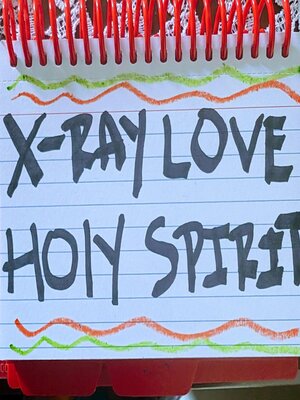 X-RAY LOVE
HOLY SPIRIT